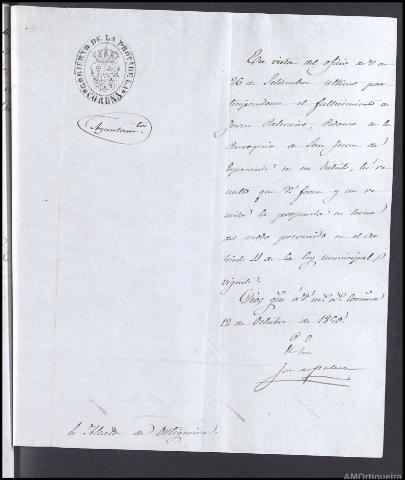 GOBIERNO DE LA PROV. DE LA CORUÑA
Ayuntam.tos
En vista del oficio de V. de
26 de Setiembre último
el fallecimiento de
Juan Pedaneo de la
Parroquia de San Juan de
en ese distrito, he
que V. forme y me re
mita la propuesta en terna
del modo prevenido en el Ar
tículo de la ley municipal
vigente.
Dios gue. á V. ms. as. Coruña
12 de Octubre de 1850.
P. O.
Sr. Alcalde de Ortigueira.
AMOrtigueira